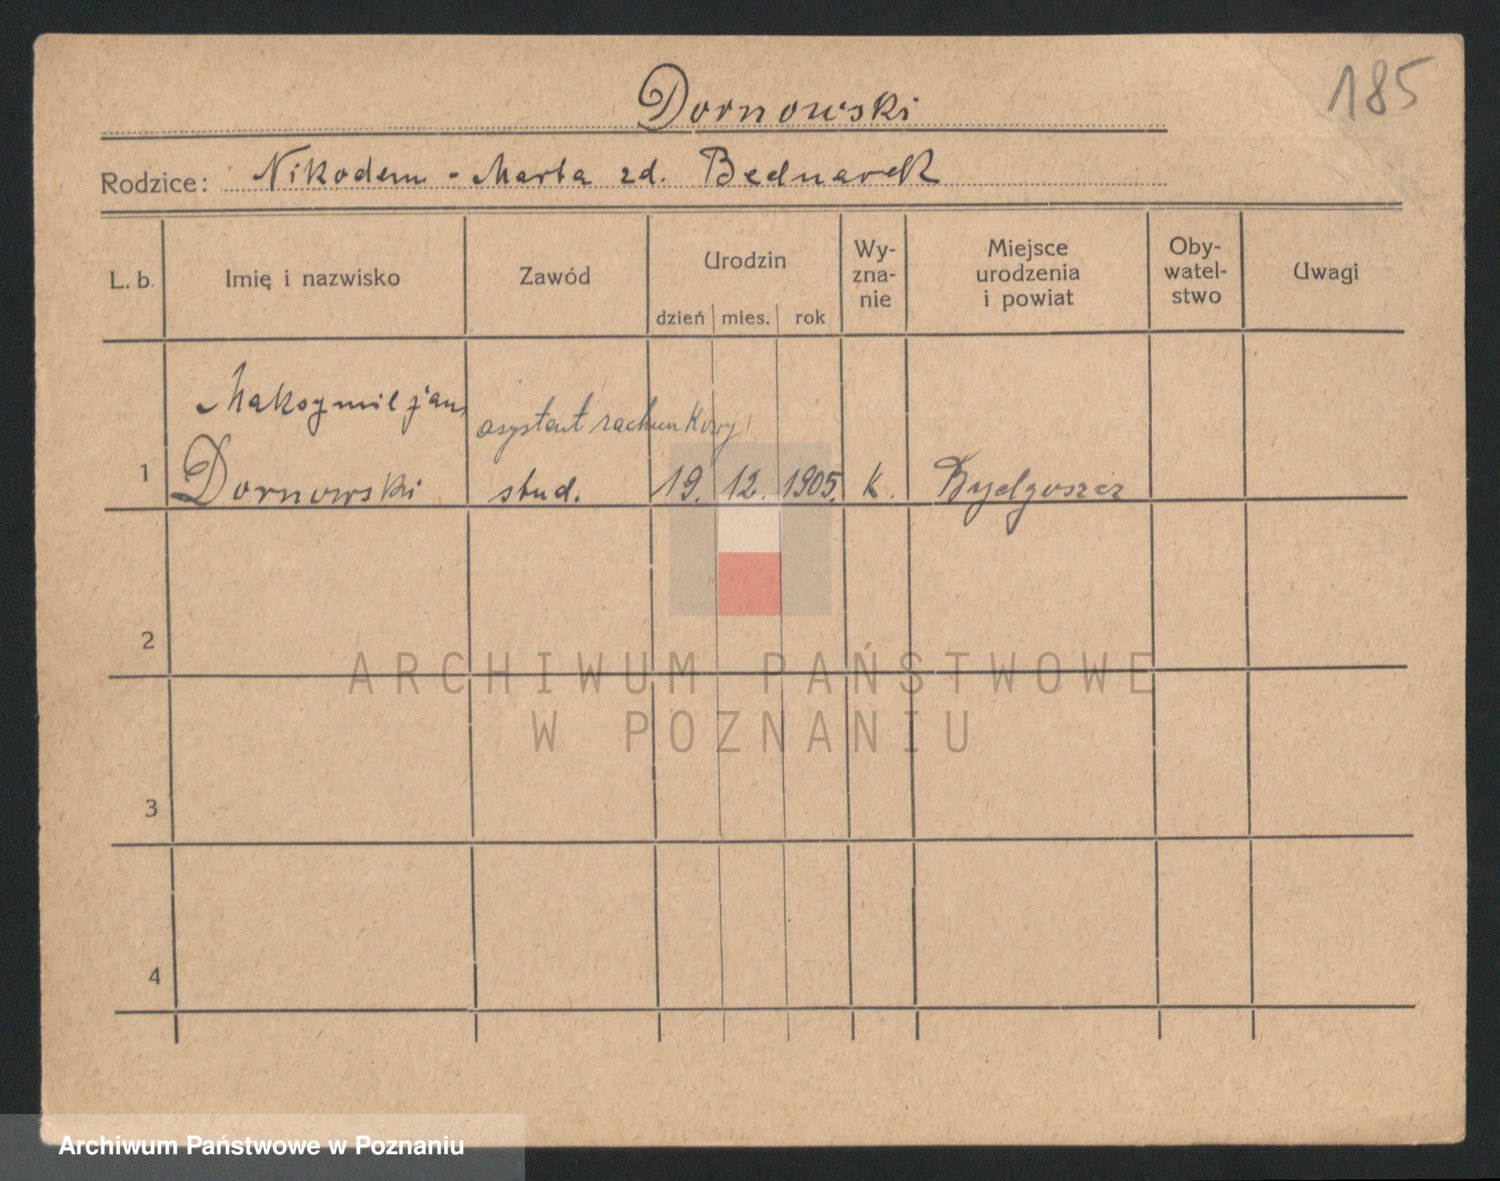 185
Dornowski
Rodzice: Nikodem - Marta zd. Bednarek
L. b. Imię i nazwisko Zawód Urodzin dzień mies. rok Wy-zna-nie Miejsce urodzenia i powiat Oby-watel-stwo Uwagi
Maksymiljan
asystent rachunkowy
1 Dornowski stud. 19. 12. 1905. k. Bydgoszcz
2
ARCHIWUM PAŃSTWOWE
W POZNANIU
3
4
Archiwum Państwowe w Poznaniu